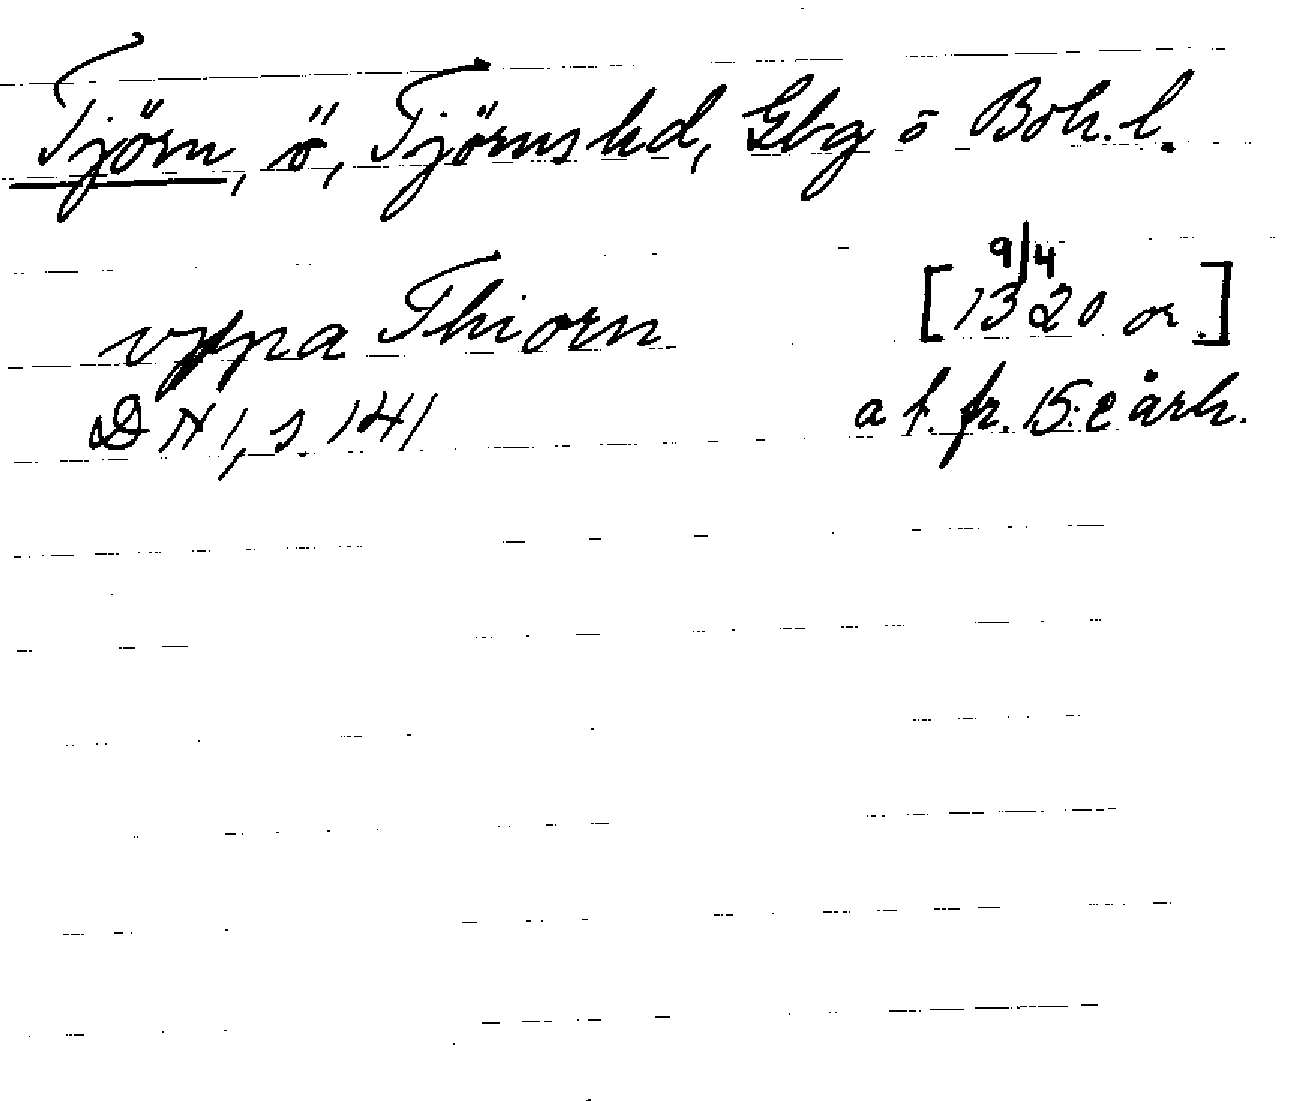 Tjörn, ö, Tjörns hd, Gbg o Boh. l.
vppa Thiorn [9/4 1320 or.]
DN 1, s. 141 a f. fr. 15:e årh.